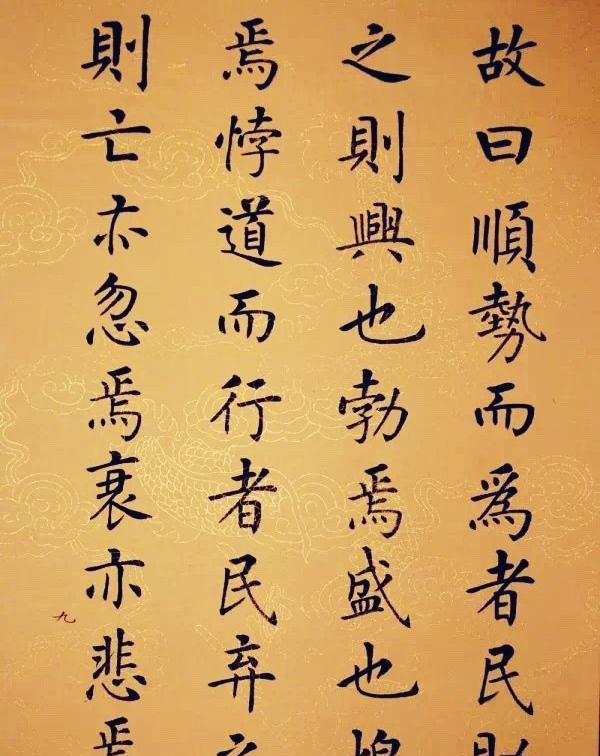 故曰順勢而爲者民
之則興也勃焉盛也
焉悖道而行者民弃之
則亡亦忽焉衰亦悲焉
九